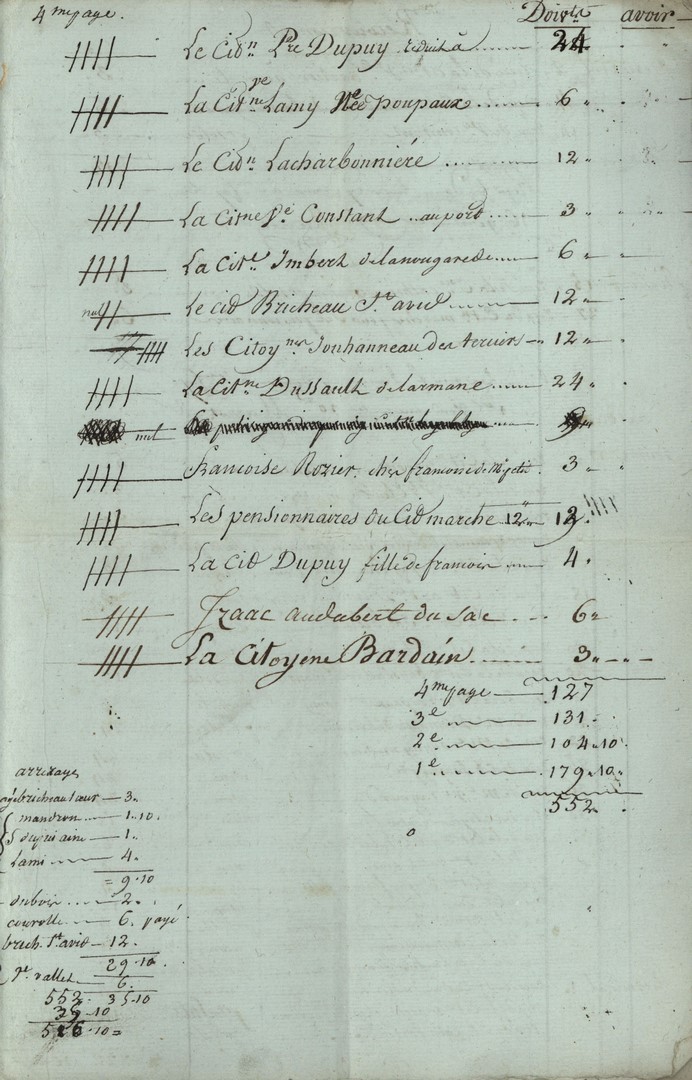 4me page. Doivt avoir
Le Citn Pre Dupuy reduit à ........ 24
La Citne ve Lamy Née poupaux ........ 6 "
Le Citn Lacharbonniére .......... 12 "
La Citne Ve Constant .. au port ...... 3 "
La Cite Imbert de lanougarede ...... 6 "
nul Le cit Bricheau St avid .......... 12 "
Les Citoynes Jouhanneau des terriers - 12 "
La Citne Dussault de larmane ...... 24 "
nul
francoise Rozier. chés francois de 3 "
Les pensionnaires du Cit marche 12 " 12
La Cit Dupuy fille de francois .... 4 "
Izaac audabert du sac ... 6 "
La Citoyene Bardain ........ 3 "
4me page — 127
3e ........ 131 .
2e ........ 104 " 10 .
1e ........ 179 " 10 "
552 .
arrerages
bricheau sœur — 3 "
mandron ...... 1 . 10 .
dupui aine — 1 .
Lami ..... 4 .
= 9 . 10
dubois .... 2 .
courolle .... 6 . payé
brich. St avid — 12 .
29 . 10 .
vallet — 6 .
552 . 35 . 10
35 . 10
516 . 10 =